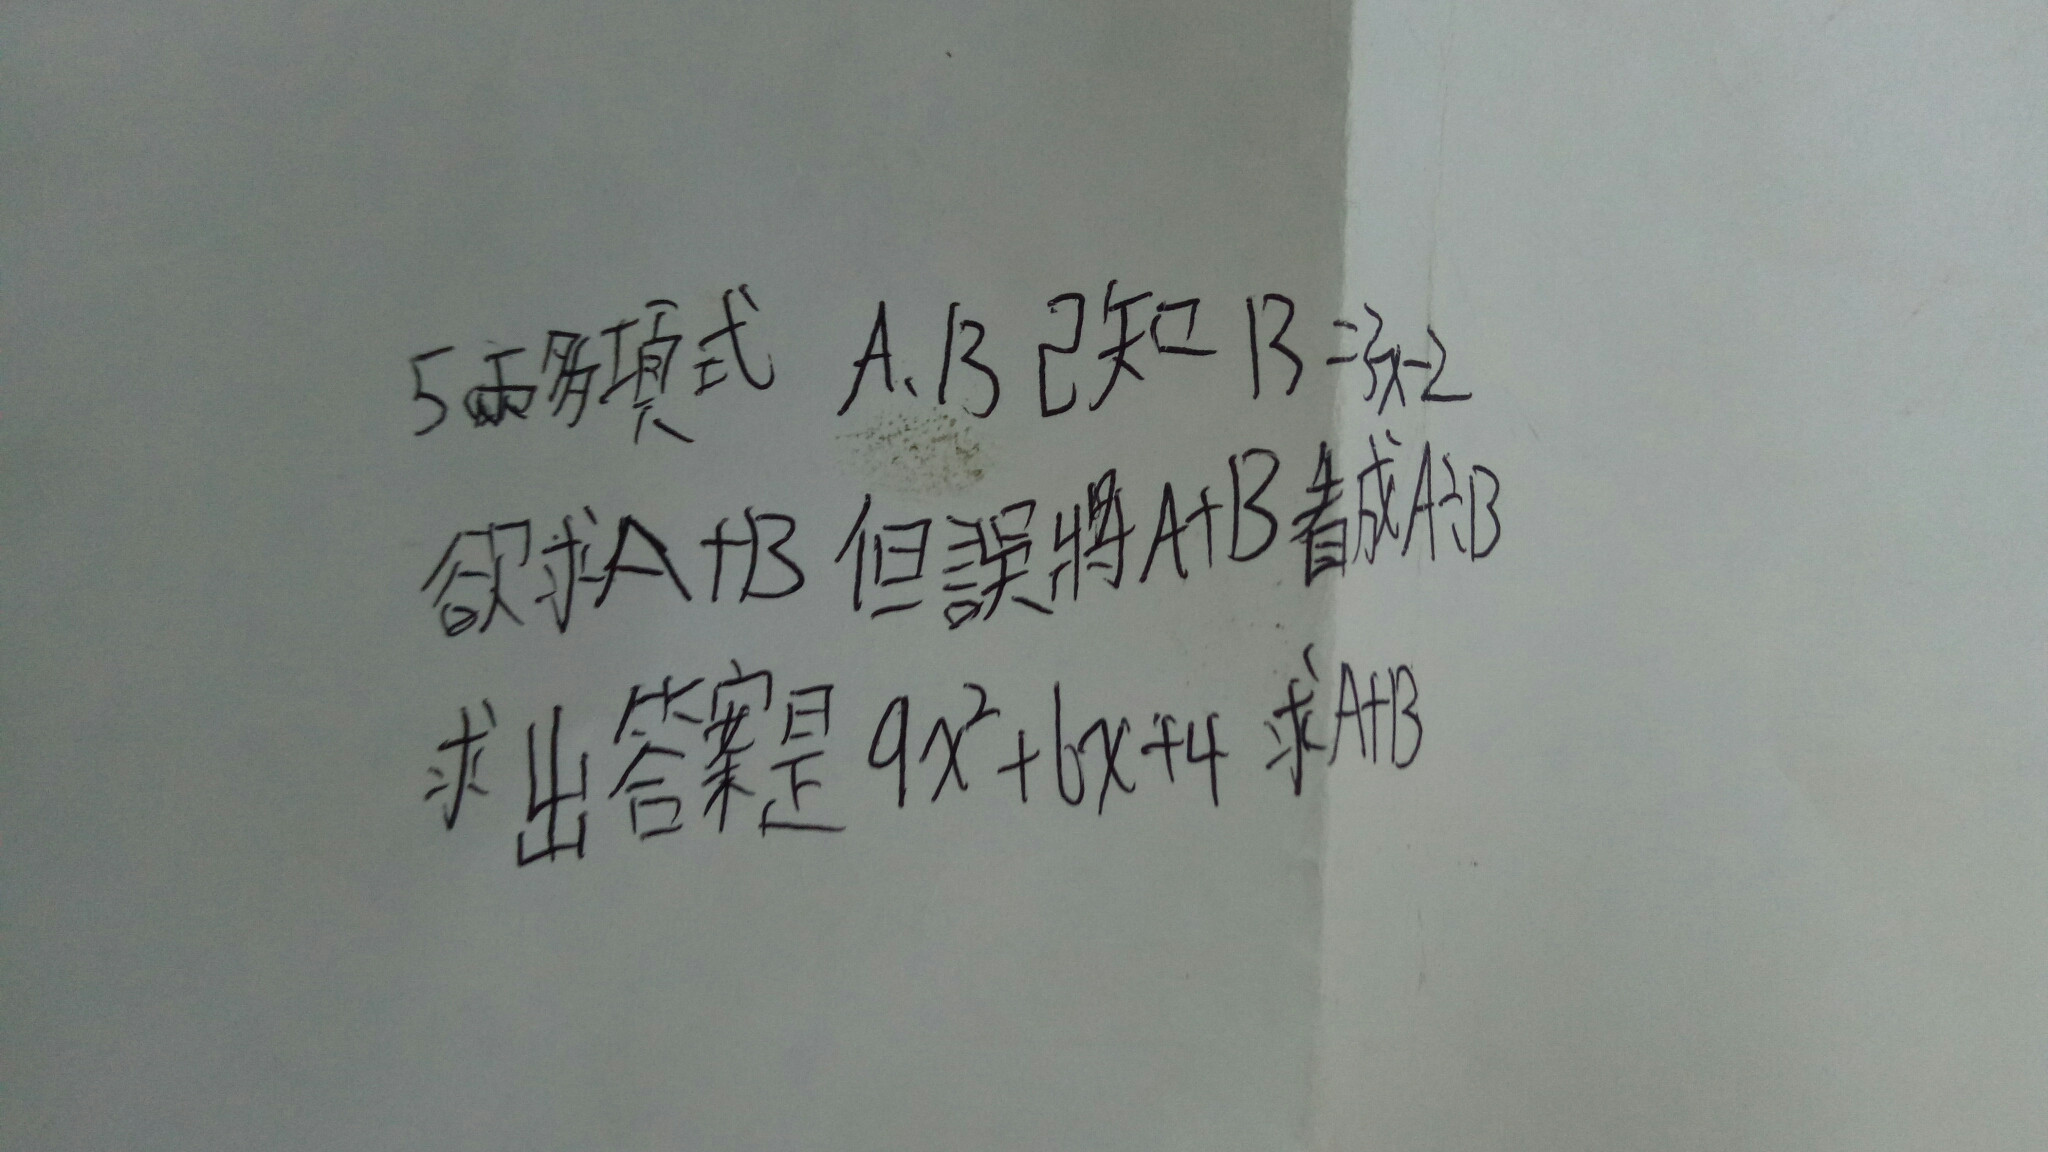 5兩多項式 A、B 已知 B=3x-2
欲求A+B 但誤將A+B看成A÷B
求出答案是 9x²+6x+4 求A+B